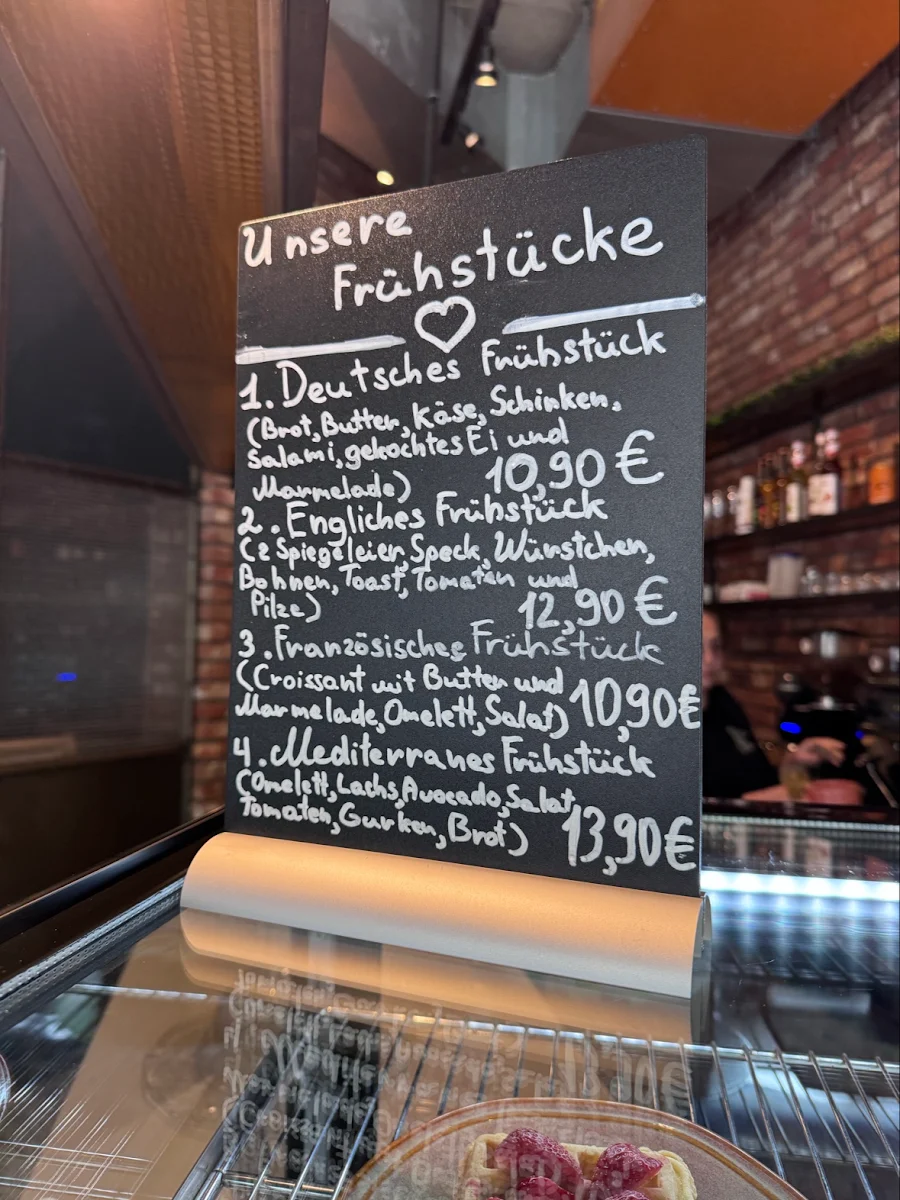 Unsere
Frühstücke
1. Deutsches Frühstück
(Brot, Butter, Käse, Schinken,
Salami, gekochtes Ei und
Marmelade) 10,90 €
2. Engliches Frühstück
(2 Spiegeleier, Speck, Würstchen,
Bohnen, Toast, Tomaten und
Pilze) 12,90 €
3. Französisches Frühstück
(Croissant mit Butter und
Marmelade, Omelett, Salat) 10,90€
4. Mediterranes Frühstück
(Omelett, Lachs, Avocado, Salat,
Tomaten, Gurken, Brot) 13,90€